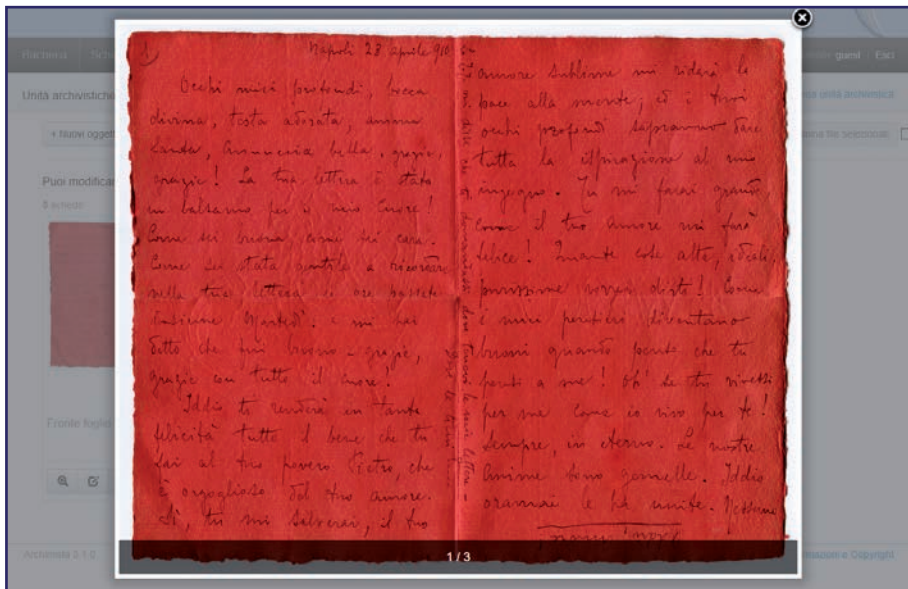 Napoli 28 aprile 910
Occhi miei profondi, bocca
divina, testa adorata, anima
santa, Annuccia bella, grazie,
grazie! La tua lettera è stato
un balsamo per il mio cuore!
Come sei buona, come sei cara.
Come sei stata gentile a ricordare
nella tua lettera le ore passate
insieme Martedì. e mi hai
detto che fui buono - grazie,
grazie con tutto il cuore!
Iddio ti renderà in tanta
felicità tutto il bene che tu
fai al tuo povero Pietro, che
è orgoglioso del tuo amore.
Sì, tu mi salverai, il tuo
amore sublime mi ridarà la
pace alla mente, ed i tuoi
occhi profondi sapranno dare
tutta la ispirazione al mio
ingegno. Tu mi farai grande,
come il tuo amore mi farà
felice! Quante cose alte, ideali,
purissime vorrei dirti! Come
i miei pensieri diventano
buoni quando penso che tu
pensi a me! Oh! se tu vivessi
per me come io vivo per te!
Sempre, in eterno. Le nostre
anime sono gemelle. Iddio
oramai le ha unite. Nessuno
1/3
Unità archivistiche
Nuovi
Puoi modificare
Fronte foglio
Archimista 2.1.0
guest
Esci
e Copyright